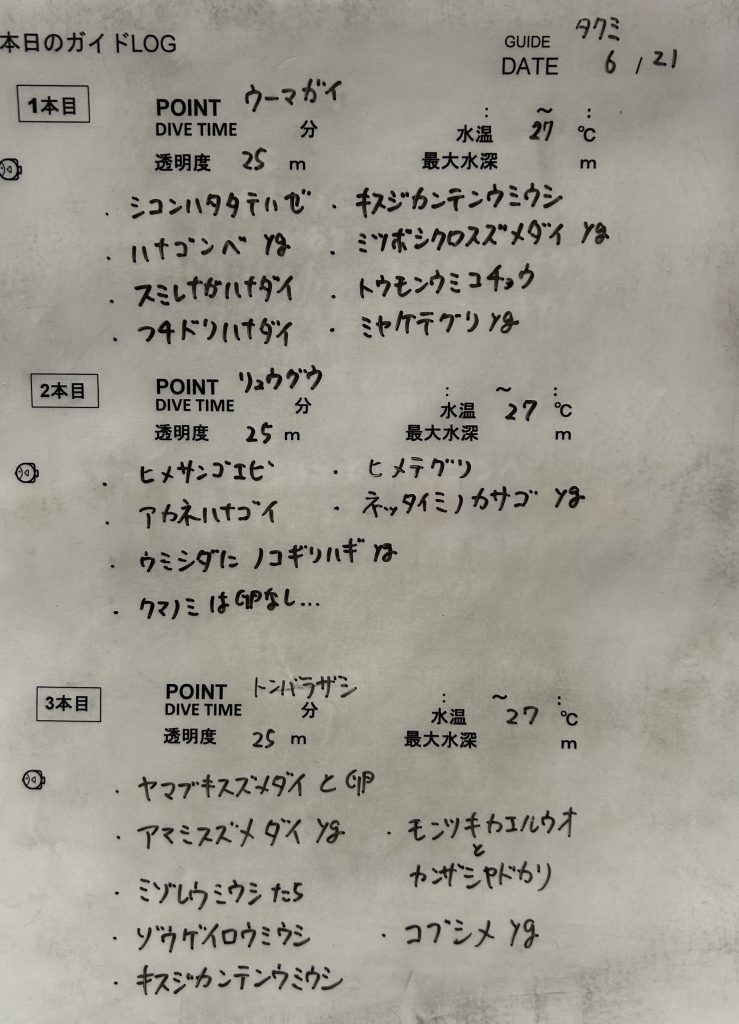 本日のガイドLOG
GUIDE タクミ
DATE 6 / 21
1本目
POINT ウーマガイ
: ～ :
DIVE TIME 分
水温 27 ℃
透明度 25 m
最大水深 m
・シコンハタタテハゼ ・キスジカンテンウミウシ
・ハナゴンベ yg ・ミツボシクロスズメダイ yg
・スミレナガハナダイ ・トウモンウミコチョウ
・フチドリハナダイ ・ミヤケテグリ yg
2本目
POINT リュウグウ
: ～ :
DIVE TIME 分
水温 27 ℃
透明度 25 m
最大水深 m
・ヒメサンゴエビ ・ヒメテグリ
・アカネハナゴイ ・ネッタイミノカサゴ yg
・ウミシダに ノコギリハギ yg
・クマノミは卵なし...
3本目
POINT トンバラザシ
: ～ :
DIVE TIME 分
水温 27 ℃
透明度 25 m
最大水深 m
・ヤマブキスズメダイ と 卵
・アマミスズメダイ yg ・モンツキカエルウオ
と
カンザシヤドカリ
・ミゾレウミウシたち
・ゾウゲイロウミウシ ・コブシメ yg
・キスジカンテンウミウシ